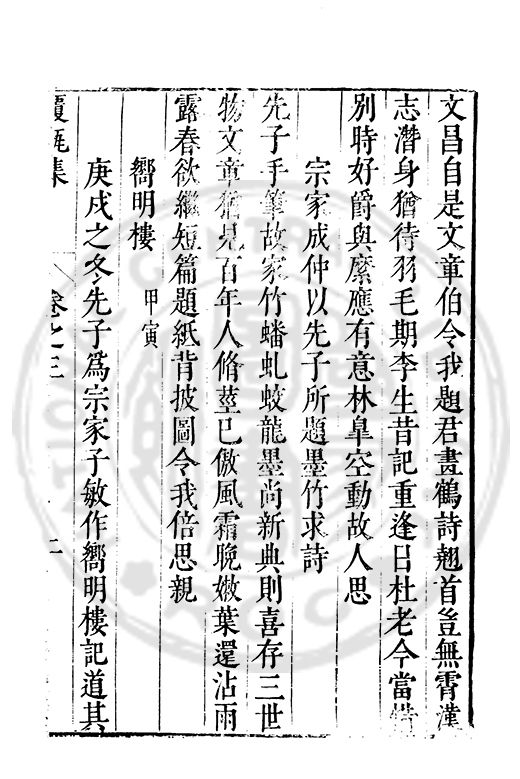 文昌自是文章伯令我題君畫鶴詩翹首豈無霄漢
志潛身猶待羽毛期李生昔記重逢日杜老今當惜
別時好爵與縻應有意林臯空動故人思
宗家成仲以先子所題墨竹求詩
先子手筆故家竹蟠虬蛟龍墨尚新典則喜存三世
物文章猶見百年人脩莖已傲風霜晚嫩葉還沾雨
露春欲繼短篇題紙背披圖令我倍思親
嚮明樓 甲寅
庚戌之冬先子爲宗家子敏作嚮明樓記道其
覆瓿集 卷之三 二